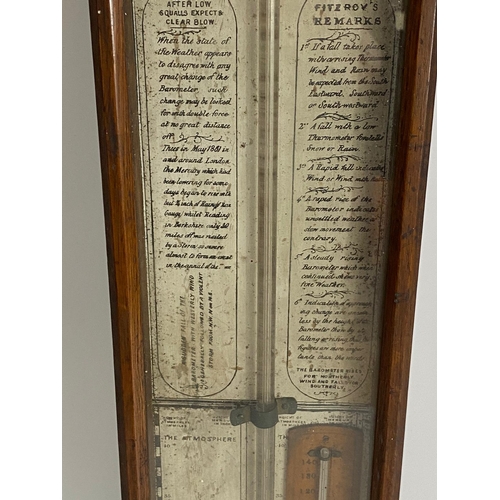 AFTER LOW
SQUALLS EXPECT &
CLEAR BLOW.
When the state of
the Weather appears
to disagree with any
great change of the
Barometer such
change may be looked
for with double force
at no great distance
off.
Thus in May 1861 in
and around London
the Mercury which had
been lowering for some
days began to rise with
but ¾ inch of Rain
whilst Reading
in Berkshire only 30
miles off was visited
by a Storm so severe
almost to form an event
in the annals of the
FALL OF THE
BAROMETER WITH WESTERLY WIND
IS GENERALLY FOLLOWED BY A VIOLENT
STORM FROM N.W. N or N.E.
FITZROY'S
REMARKS
1st If a fall takes place
with a rising Thermometer
Wind and Rain may
be expected from the South-
Eastward, Southward
or South-westward
2nd A fall with a low
Thermometer foretells
Snow or Rain.
3rd A Rapid fall indicates
Wind or Wind with Rain
4th A rapid rise of the
Barometer indicates
unsettled weather
slow movement the
contrary
5th A steady rising
Barometer which when
continued shows very
fine Weather.
6th Indications of approach-
ing change are
less by the height of the
Barometer than by its
falling or rising
are more impor-
tants than the
THE BAROMETER RISES
FOR NORTHERLY
WIND AND FALLS FOR
SOUTHERLY.
THE ATMOSPHERE
THE
F
140
130
120